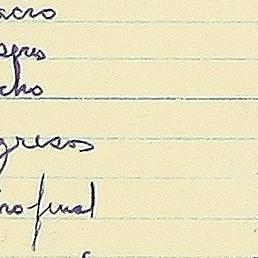 acro
seres
cho
gresos
ro final